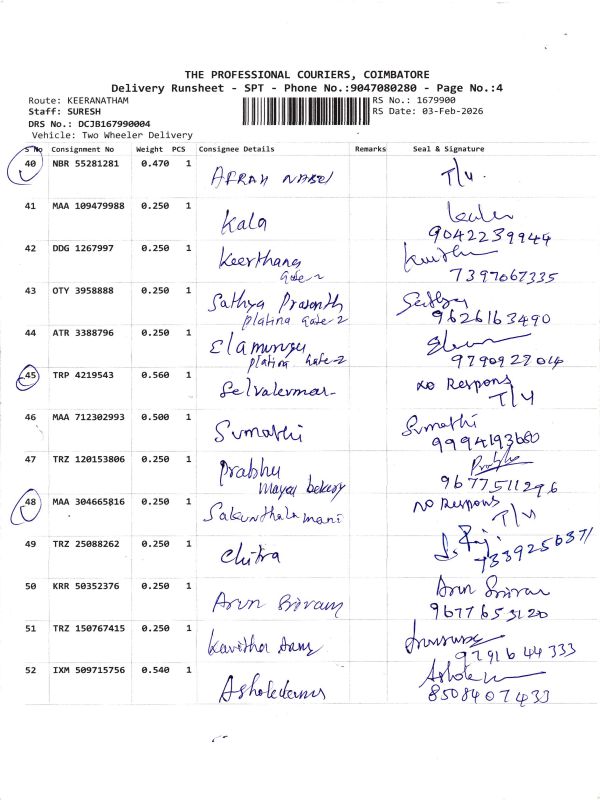 THE PROFESSIONAL COURIERS, COIMBATORE
Delivery Runsheet - SPT - Phone No.:9047080280 - Page No.:4
Route: KEERANATHAM
RS No.: 1679900
Staff: SURESH
RS Date: 03-Feb-2026
DRS No.: DCJB167990004
Vehicle: Two Wheeler Delivery
S No Consignment No Weight PCS Consignee Details Remarks Seal & Signature
40 NBR 55281281 0.470 1 AFRAH NABEL T/4.
41 MAA 109479988 0.250 1 Kala
9042239944
42 DDG 1267997 0.250 1 Keerthana
Gate 2
7397067335
43 OTY 3958888 0.250 1 Sathya Prasanth Sathya
platina Gate 2 9626163490
44 ATR 3388796 0.250 1 Elamurugu
platina Gate 2 9790927014
45 TRP 4219543 0.560 1 Selvakumar NO Respons
T/4
46 MAA 712302993 0.500 1 Sumathi Sumathi
9994193680
47 TRZ 120153806 0.250 1 Prabhu Prabhu
bakery 9677511296
48 MAA 304665816 0.250 1 Sakunthala mani NO Respons
T/4
49 TRZ 25088262 0.250 1 Chitra
7339256371
50 KRR 50352376 0.250 1 Arun Sriram Arun Sriram
9677653120
51 TRZ 150767415 0.250 1 Kavitha
9791644333
52 IXM 509715756 0.540 1 Ashokkumar Ashok
8508407433